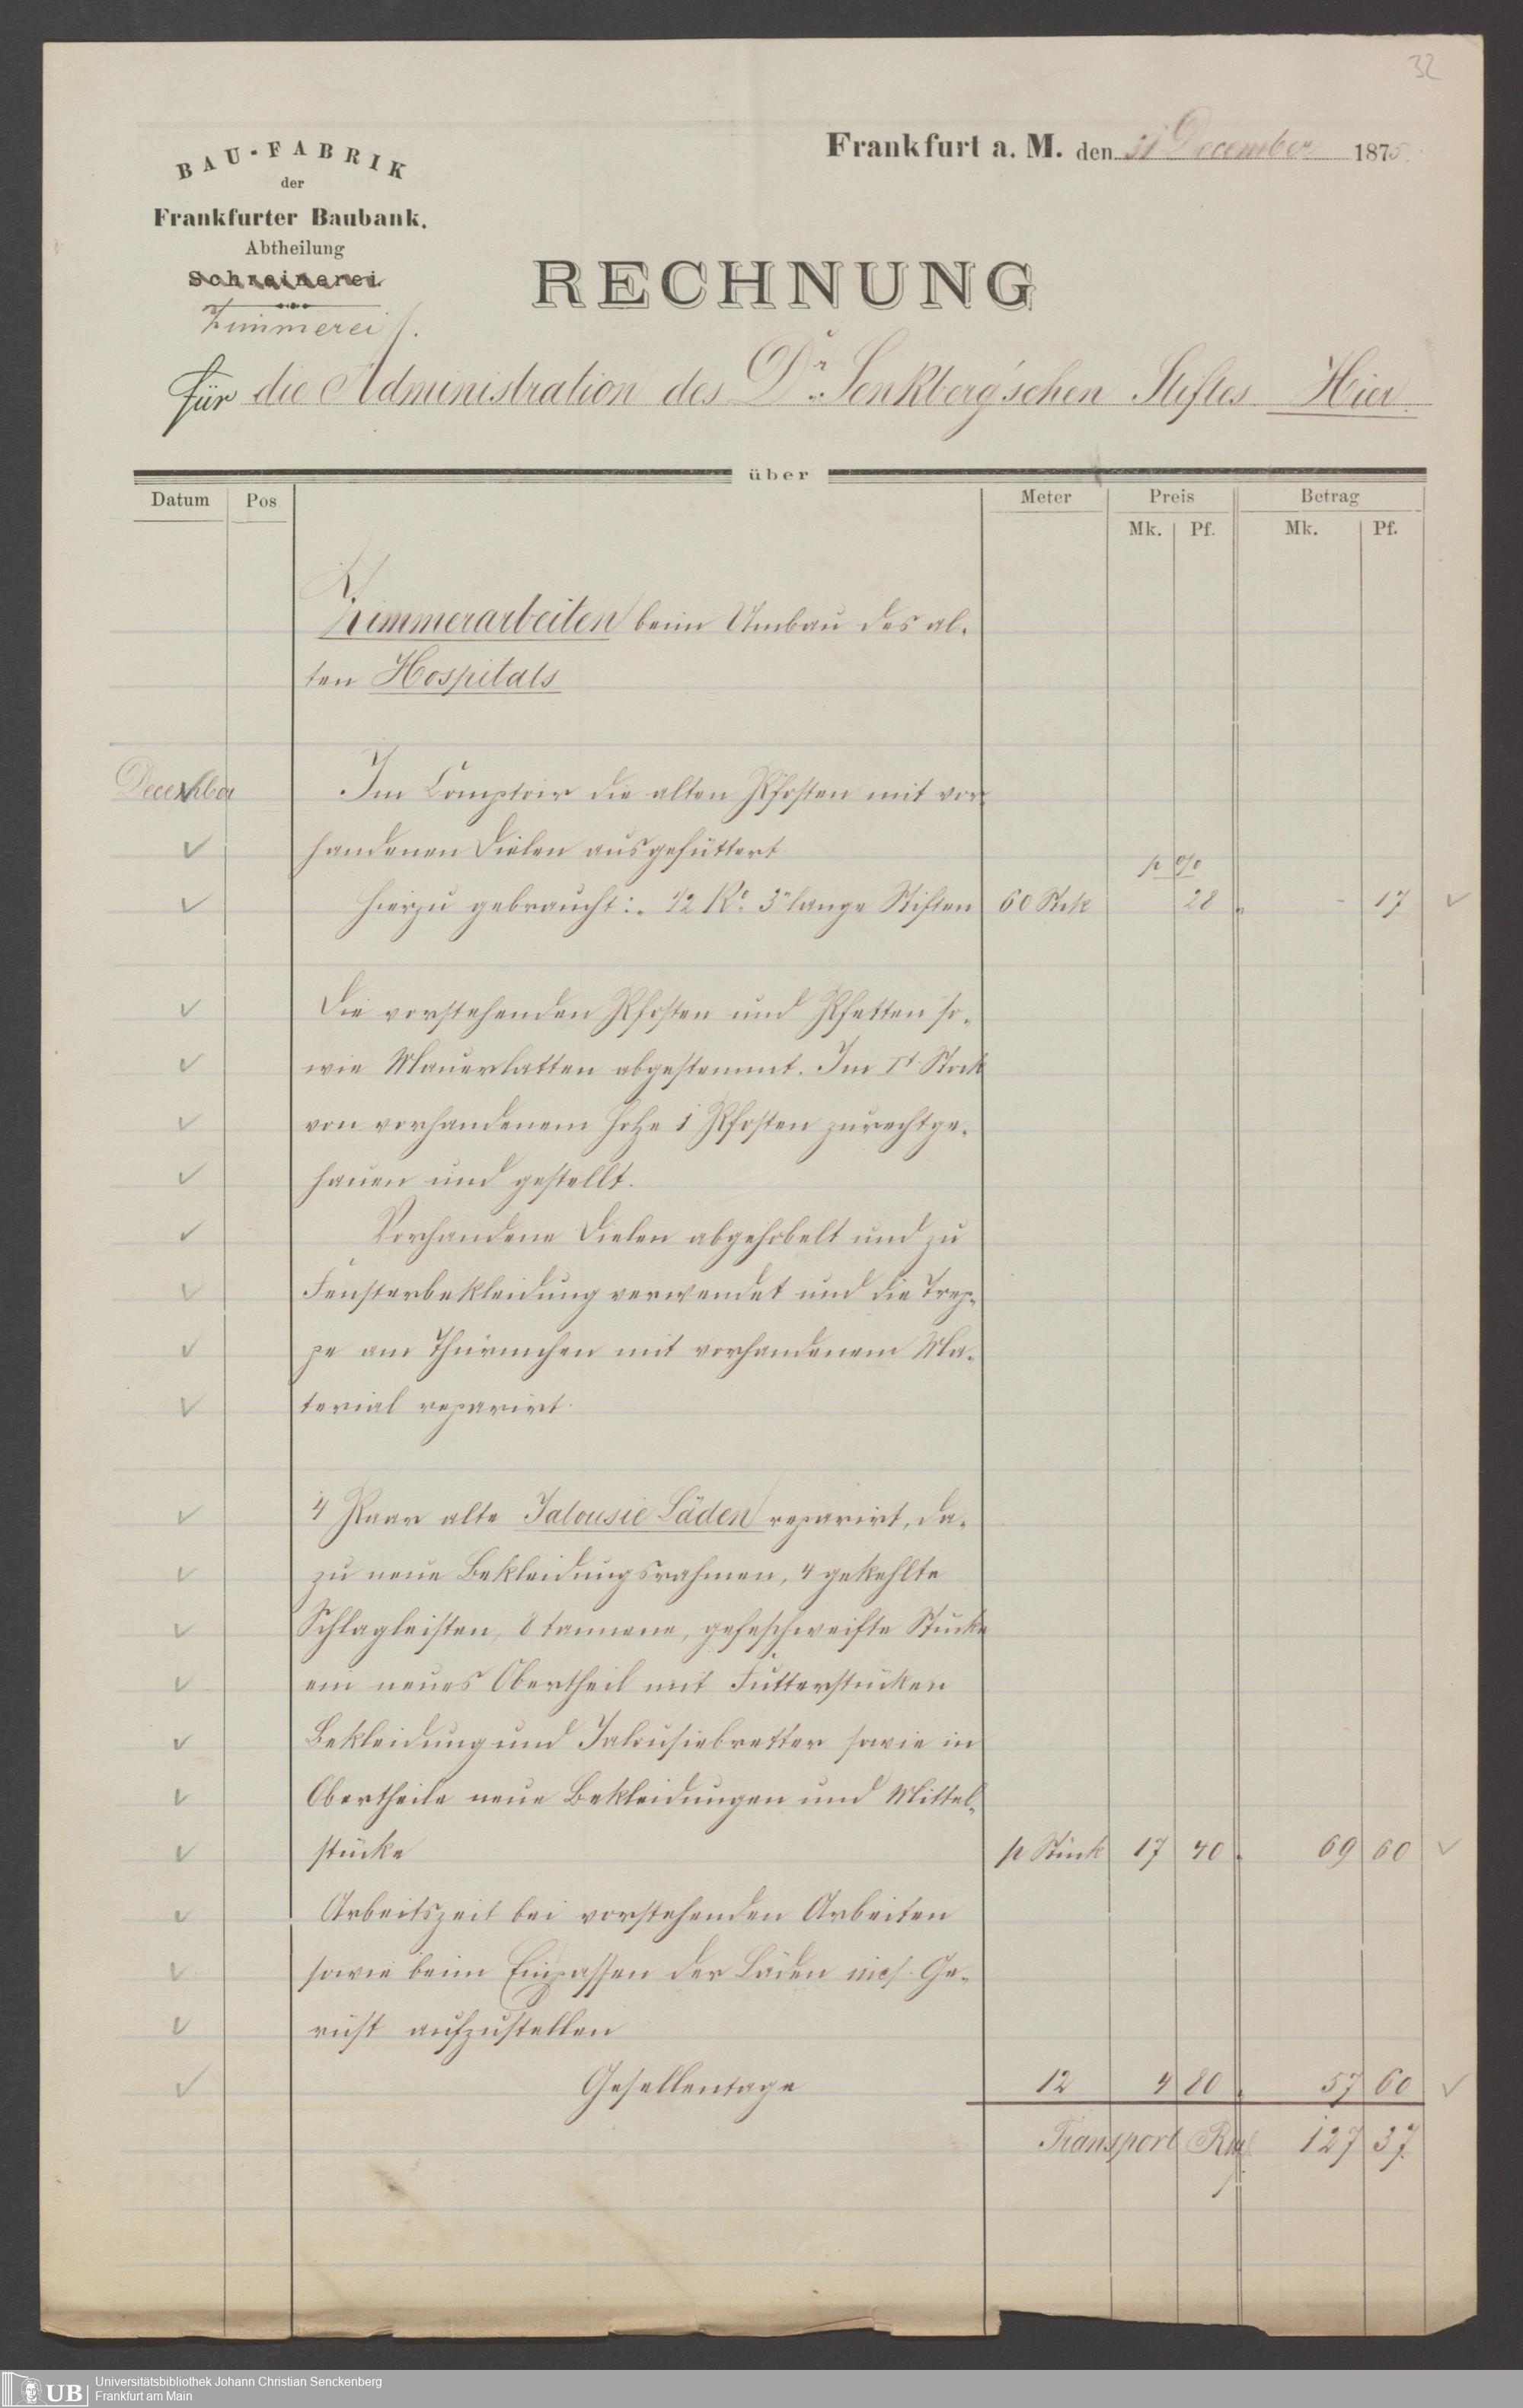 32
BAU-FABRIK
der
Frankfurter Baubank.
Abtheilung
Schreinerei.
Zimmerei
Frankfurt a. M. den 31 December 1875.
RECHNUNG
für die Administration des Dr. Senkberg'schen Stiftes Hier.
über
Datum Pos Meter Preis Betrag
Mk. Pf. Mk. Pf.
Zimmerarbeiten beim Umbau des al-
ten Hospitals
December Im Comptoir die alten Pfosten mit vor-
handenen Dielen ausgefüttert
p %
hierzu gebraucht: 3" lange Stiften 60 Stck 28 - 17
Die vorstehenden Pfosten und Pfetten so-
wie Mauerlatten abgestemmt. Im Stock
von vorhandenem Holze 1 Pfosten zurechtge-
hauen und gestellt.
Vorhandene Dielen abgehobelt und zu
Fensterbekleidung verwendet und die Trep-
pe am Thürmchen mit vorhandenem Ma-
terial reparirt.
4 Paar alte Jalousie Läden reparirt, da-
zu neue Bekleidungsrahmen, 4 gekehlte
Schlagleisten, 8 tannene, geschweifte Stücke
ein neues Obertheil mit Futterstücken
Bekleidung und Jalousiebretter sowie in
Obertheile neue Bekleidungen und Mittel-
stücke p Stück 17 40 69 60
Arbeitszeit bei vorstehenden Arbeiten
sowie beim Einpassen der Läden incl. Ge-
rüst aufzustellen
Gesellentage 12 4 80 57 60
Transport 127 37.
UB
Universitätsbibliothek Johann Christian Senckenberg
Frankfurt am Main